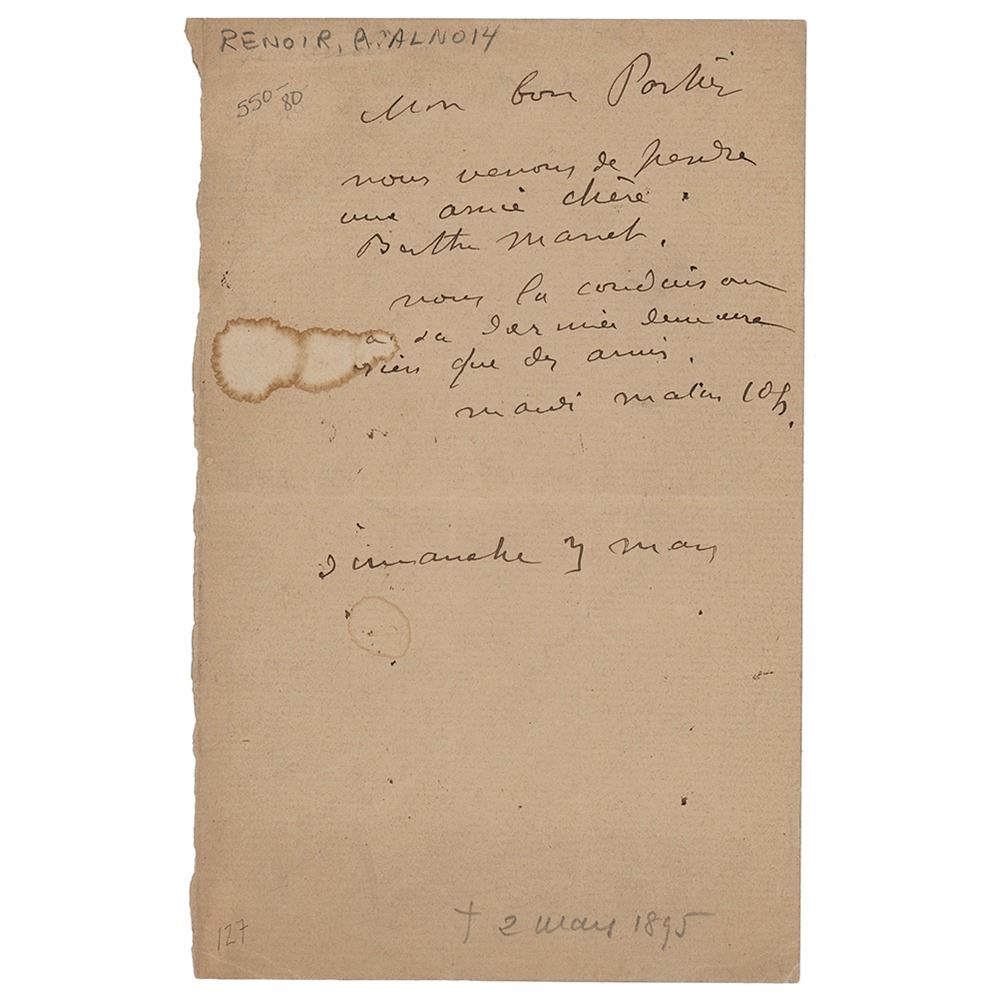 RENOIR, A. ALNO14
550 80
Mon bon Portier
nous venons de perdre
une amie chère.
Berthe Manet.
nous la conduisons
a sa dernière demeure
rien que des amis.
mardi matin 10h.
dimanche 3 mars
† 2 mars 1895
127